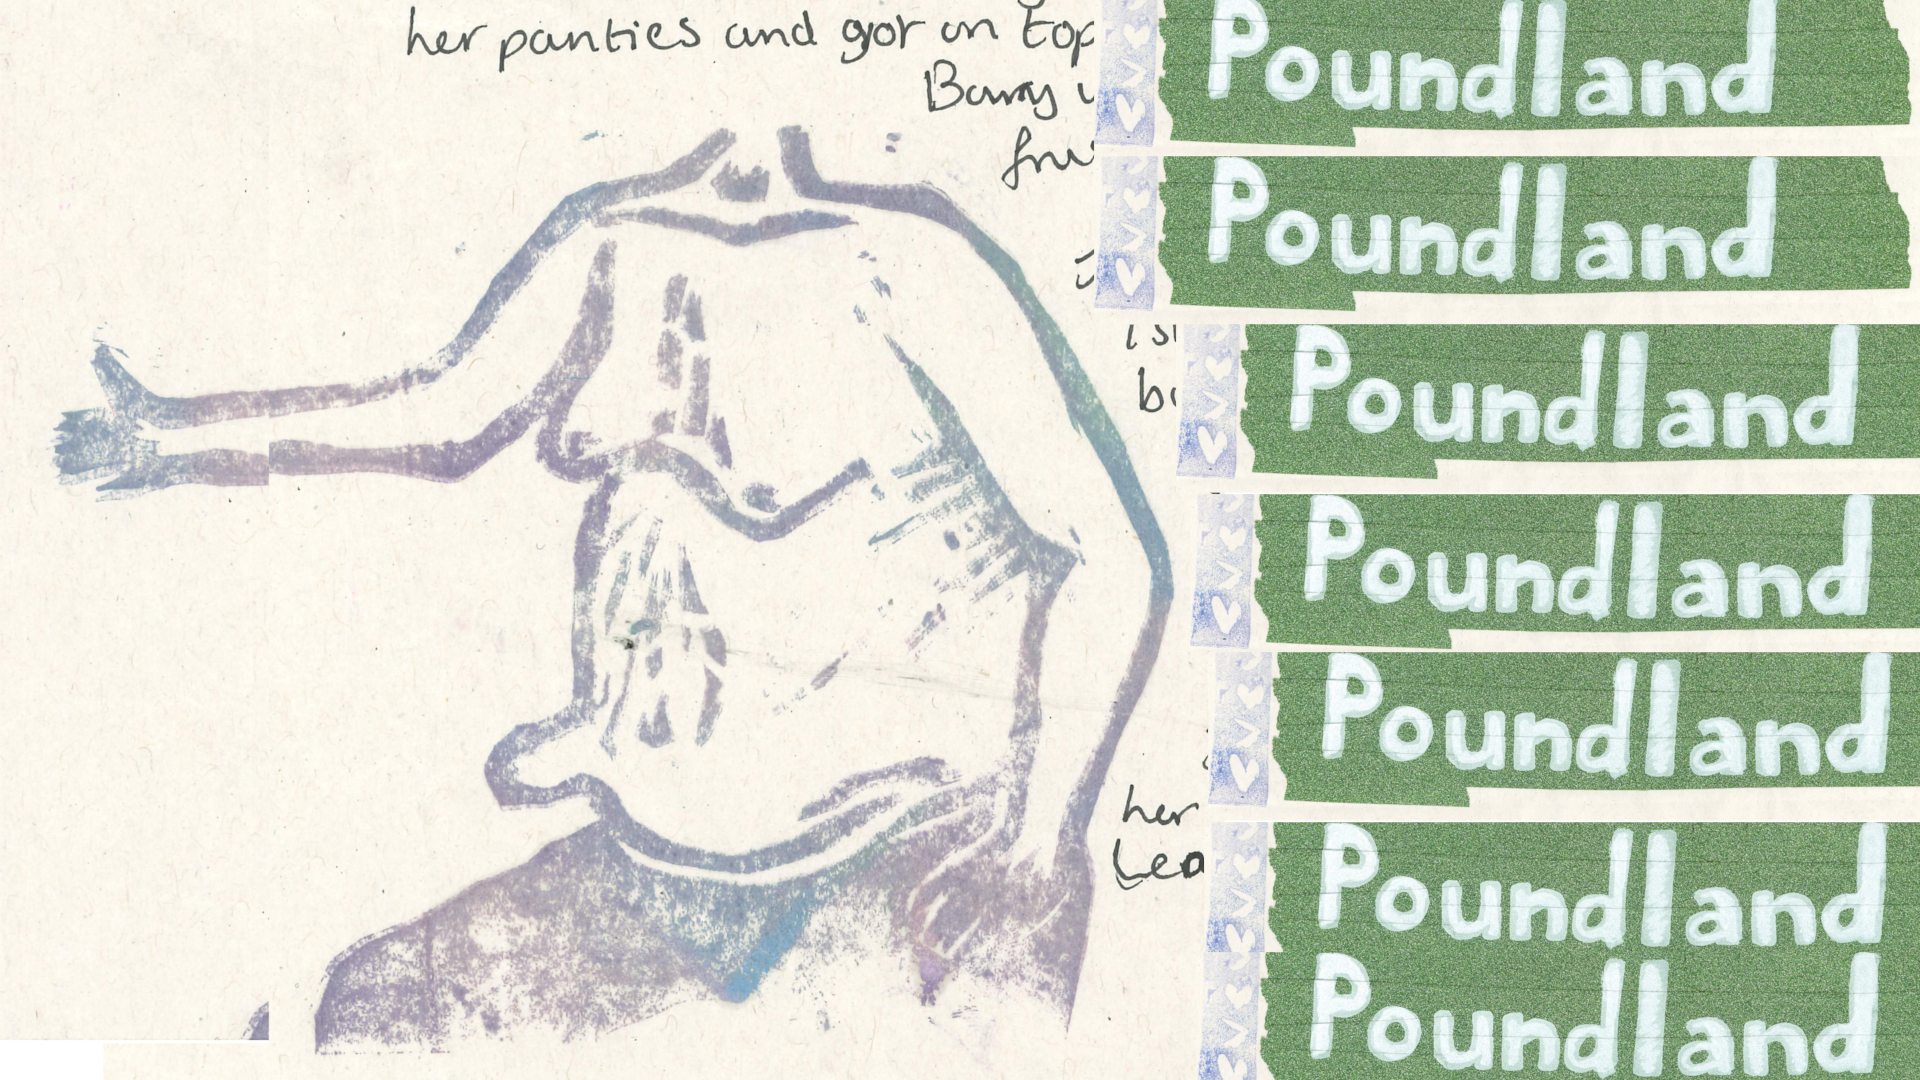 her panties and got on top
Barry
Poundland
Poundland
Poundland
Poundland
Poundland
her
Lea
Poundland
Poundland